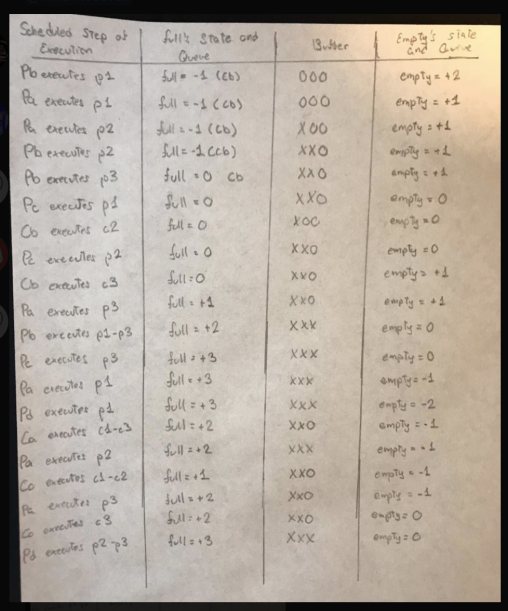 Scheduled Step of Execution | full's State and Queue | Buffer | Empty's state and Queue
Pb executes p1 | full = -1 (Cb) | OOO | empty = +2
Pa executes p1 | full = -1 (Cb) | OOO | empty = +1
Pa executes p2 | full = -1 (Cb) | XOO | empty = +1
Pb executes p2 | full = -1 (Cb) | XXO | empty = +1
Pb executes p3 | full = 0 Cb | XXO | empty = +1
Pc executes p1 | full = 0 | XXO | empty = 0
Cb executes c2 | full = 0 | XOO | empty = 0
Pc executes p2 | full = 0 | XXO | empty = 0
Cb executes c3 | full = 0 | XXO | empty = +1
Pa executes p3 | full = +1 | XXO | empty = +1
Pb executes p1-p3 | full = +2 | XXX | empty = 0
Pc executes p3 | full = +3 | XXX | empty = 0
Pa executes p1 | full = +3 | XXX | empty = -1
Pd executes p1 | full = +3 | XXX | empty = -2
Ca executes c1-c3 | full = +2 | XXO | empty = -1
Pa executes p2 | full = +2 | XXX | empty = -1
Cc executes c1-c2 | full = +1 | XXO | empty = -1
Pa executes p3 | full = +2 | XXO | empty = -1
Cc executes c3 | full = +2 | XXO | empty = 0
Pd executes p2-p3 | full = +3 | XXX | empty = 0